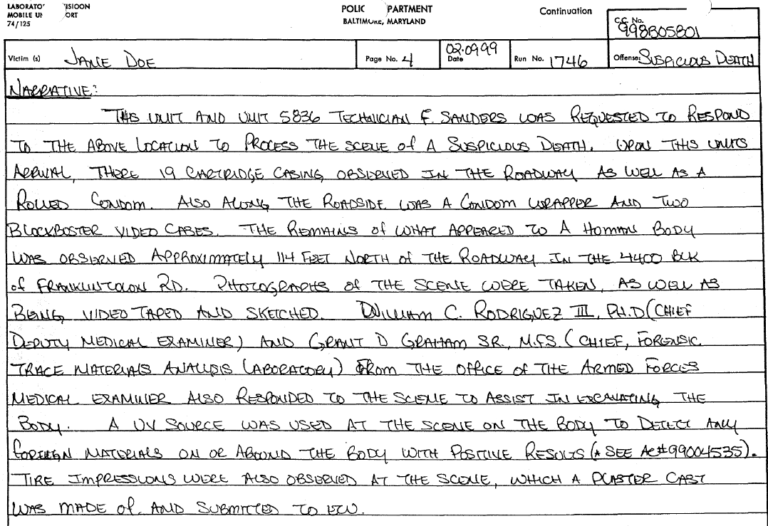 LABORATO ISIOON POLIC PARTMENT Continuation
MOBILE U ORT BALTIMORE, MARYLAND C.C. No.
74/125 998B05801
Victim (s) JANE DOE Page No. 4 02.0999 Date Run No. 1746 Offense: SUSPICIOUS DEATH
NARRATIVE:
THIS UNIT AND UNIT 5836 TECHNICIAN F. SANDERS WAS REQUESTED TO RESPOND
TO THE ABOVE LOCATION TO PROCESS THE SCENE OF A SUSPICIOUS DEATH. UPON THIS UNITS
ARRIVAL, THERE 19 CARTRIDGE CASING OBSERVED IN THE ROADWAY, AS WELL AS A
ROLLED CONDOM. ALSO ALONG THE ROADSIDE WAS A CONDOM WRAPPER AND TWO
BLOCKBOSTER VIDEO CASES. THE REMAINS OF WHAT APPEARED TO A HUMAN BODY
WAS OBSERVED APPROXIMATELY 114 FEET NORTH OF THE ROADWAY IN THE 4400 BLK
OF FRANKLINTOWN RD. PHOTOGRAPHS OF THE SCENE WERE TAKEN, AS WELL AS
BEING VIDEO TAPED AND SKETCHED. WILLIAM C. RODRIGUEZ III, PH.D (CHIEF
DEPUTY MEDICAL EXAMINER) AND GRANT D. GRAHAM SR., M.F.S. (CHIEF, FORENSIC
TRACE MATERIALS ANALYSIS LABORATORY) FROM THE OFFICE OF THE ARMED FORCES
MEDICAL EXAMINER ALSO RESPONDED TO THE SCENE TO ASSIST IN EXCAVATING THE
BODY. A UV SOURCE WAS USED AT THE SCENE ON THE BODY TO DETECT ANY
FOREIGN MATERIALS ON OR AROUND THE BODY WITH POSITIVE RESULTS (* SEE AC#99004535).
TIRE IMPRESSIONS WERE ALSO OBSERVED AT THE SCENE, WHICH A PLASTER CAST
WAS MADE OF AND SUBMITTED TO ECU.